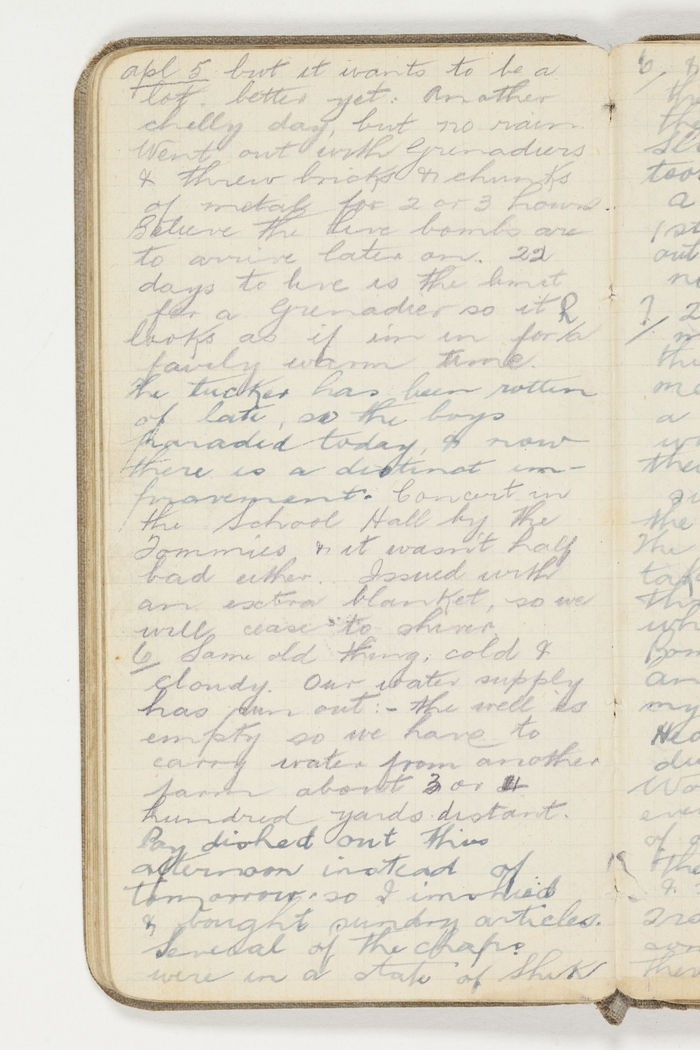 apl 5 but it wants to be a
lot better yet. Another
chelly day, but no rain
Went out with Grenadiers
& threw bricks & chunks
of metal for 2 or 3 hours.
Believe the live bombs are
to arrive later on. 22
days to live is the limit
for a Grenadier so it
looks as if im in for a
fairly warm time.
the tucker has been rotten
of late, so the boys
paraded today, & now
there is a distinct im-
provement. Concert in
the School Hall by the
Tommies & it wasn't half
bad either. Issued with
an extra blanket, so we
will cease to shiver
6/ Same old thing, cold &
cloudy. Our water supply
has run out:- the well is
empty so we have to
carry water from another
farm about 3 or 4
hundred yards distant.
Pay dished out this
afternoon instead of
tomorrow. so I
& bought sundry articles.
Several of the chaps
were in a state of